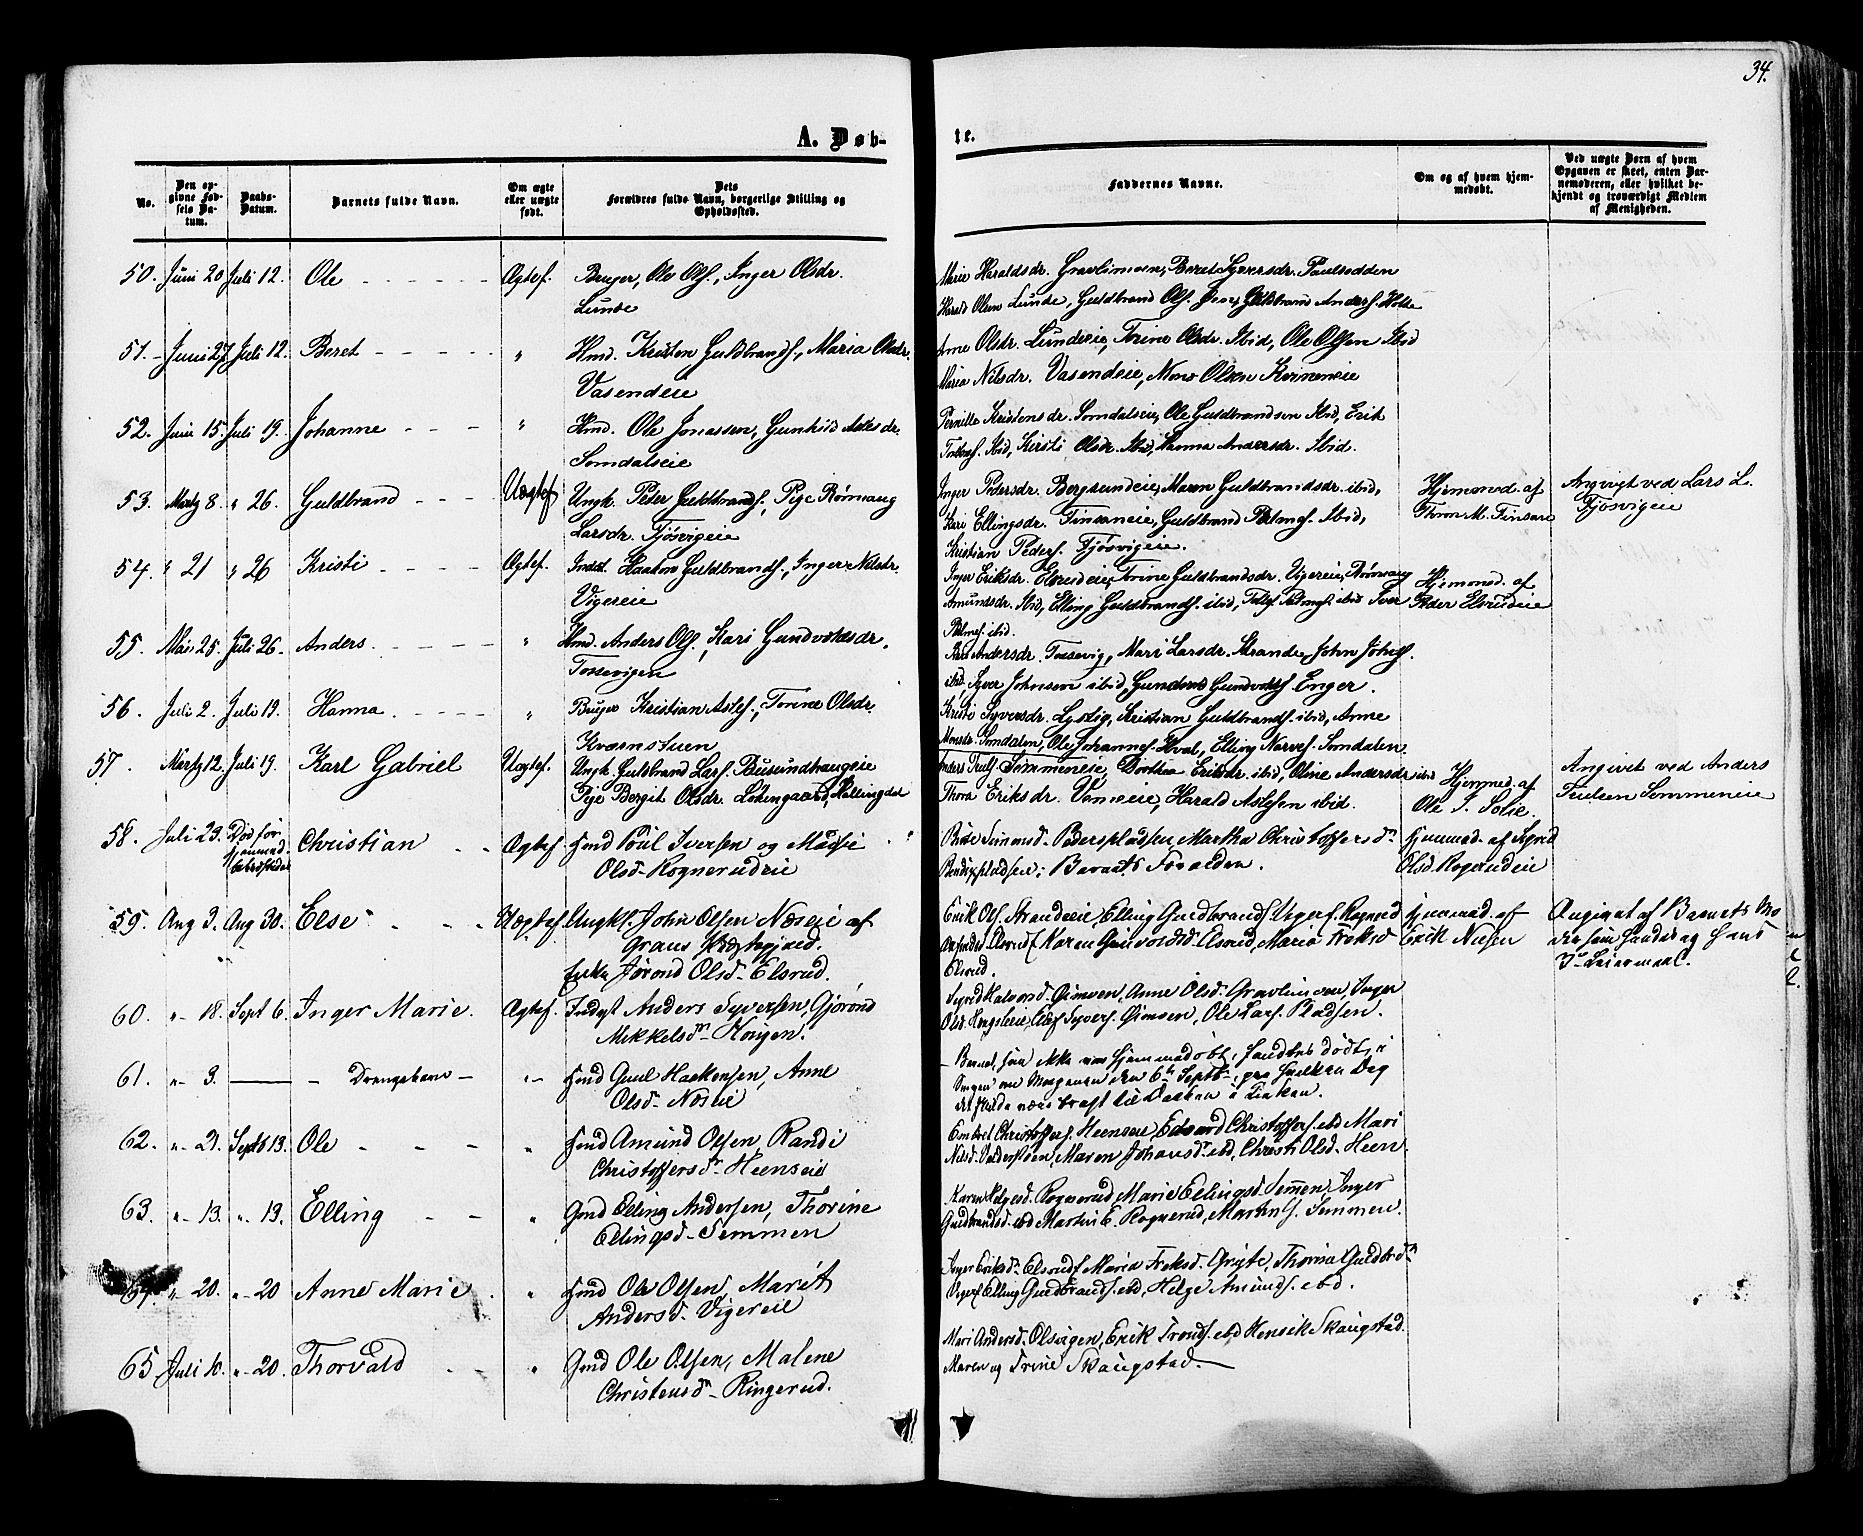 34.
A. Døb-
te.
No.
Den op-
givne Fød-
sels Da-
tum.
Daabs-
Datum.
Barnets fulde Navn.
Om ægte
eller uægte
født.
Dets
Forældres fulde Navn, borgerlige Stilling og
Opholdssted.
Faddernes Navne.
Om og af hvem hjem-
medøbt.
Ved uægte Børn af hvem
Opgaven er skeet, enten Bar-
nemoderen, eller hvilket be-
kjendt og troværdigt Medlem
af Menigheden.
50. Juni 20 Juli 12. Ole Ægtef. Bruger, Ole Ols., Inger Olsdr.
Lunde
Marie Haraldsdr. Gravlimoen, Beret Syversdr. Paulsødden
Harald Olsen Lunde, Guldbrand Ols. Guldbrand Anders. Holte
51. Juni 27 Juli 12. Beret " Hmd. Kristen Guldbrands., Maria Olsdr.
Vasendeie
Anne Olsdr. Lundeeie, Torine Olsdr. Ibid, Ole Olsen Ibid
Maria Nilsdr. Vasendeie, Mons Olsen
52. Juni 15. Juli 19. Johanne " Hmd. Ole Jonassen, Gunhild Aslesdr.
Somdalseie
Pernille Kristensdr. Somdalseie, Ole Guldbrandsen Ibid, Erik
Ibid, Kirsti Olsdr. Ibid, Hanna Andersdr. Ibid.
53. Martz 8. " 26. Guldbrand Uægtef Ungk. Peder Guldbrands. Pige Rønnaug
Larsdr. Fjösvigeie
Inger Pedersdr. Bergsundeie, Maren Guldbrandsdr. ibid,
Kari Ellingsdr. Finsaneie, Guldbrand Palmes. Ibid,
Kristian Peders. Fjösvigeie.
Hjemmed. af
Thron M. Finsan
Angivgt ved Lars L.
Fjösvigeie
54. " 21 " 26 Kristi Ægtef. Indst. Haaken Guldbrands., Inger Nilsdr.
Vigereie
Inger Eriksdr. Elsrudeie, Torine Guldbrandsdr. Vigereie, Rønnaug
Amundsdr. Ibid, Elling Guldbrands. ibid, Palmes. ibid Iver
Palmes. ibid.
Hjemmed. af
Peder Elsrudeie
55. Mai 25. Juli 26. Anders " Hmd. Anders Ols., Kari Gundvoldsdr.
Tossevigen
Andersdr. Tossevig, Mari Larsdr. Strande, John Johns.
ibid, Syver Johnsen ibid, Gundvolds Enger.
56. Juli 2. Juli 19. Hanna " Bruger Kristian Asles., Torine Olsdr.
Kværnstuen
Kristi Syversdr. Lystig, Kristian Guldbrands. ibid, Anne
Monsdr. Somdalen, Ole Johannes. Hval, Elling Narves. Somdalen
57. Martz 12. Juli 19. Karl Gabriel Uægtef. Ungk. Guldbrand Lars. Busundhaugeie
Pige Bergit Olsdr. Løkengaard, Hallingdal
Anders Truls. Simmeneie, Dorthea Eriksdr. ibid, Oline Andersdr. ibid
Thora Eriksdr. Vameie, Harald Aslesen ibid.
Hjemmed. af
Ole I. Solie
Angivet ved Anders
Trulsen Sommeneie
58. Juli 23. Død før
Christian Ægtef. Hmd Poul Iversen og Madsie
Olsd. Rognerudeie
Pederspladsen, Martha Christoffersdr.
Bendixpladsen, Barnets Forælder.
Hjemmed. af Sigrid
Olsd. Rognerudeie
59. Aug 3. Aug 30. Else Uægtef Ungk. John Olsen Næseie af
Grans Præstegjeld.
Enke Jørond Olsd. Elsrud.
Erik Ols. Strandeeie, Elling Guldbrands. Viger, Rognerd
Elsrud, Karen Gunvoldsd. Elsrud, Maria Eriksd
Elsrud.
Hjemmed. af
Erik Nilsen
Angivet af Barnets Mo
der som hendes og hans
3die Leiermaal.
60. " 18. Sept 6. Inger Marie. Ægtef. Indst Anders Syversen, Gjørond
Mikkelsdr. Hougen.
Sigrid Halvorsd. Simoen, Anne Olsd. Gravlimoen, Inger
Olsd. Hougsleie, Syvers. Simoen, Ole Lars. Pladsen.
61. " 3. — Drengebarn — " Hmd Gul Haakensen, Anne
Olsd. Næseie
Barnet, som ikke var hjemmedøbt, fandtes dødt i
Sengen om Morgenen den 6te Septb. paa hvilken Dag
det skulde være bragt til Daaben i Kirken.
62. " 21. Septb 13. Ole " Hmd Amund Olsen, Randi
Christoffersdr. Heenseie
Embret Christoffers. Heenseie, Edvard Christoffers. ebd Mari
Nilsd. Maren Johansd. ebd, Christi Olsd. Heen.
63. " 13. " 13. Elling " Gmd Elling Andersen, Thorine
Ellingsd. Semmen
Karen Helgesd. Rognerud, Marie Ellingsd. Semmen, Inger
Guldbrandsd. ebd Martin E. Rognerud, Martin G. Semmen.
64. " 20. " 20 Anne Marie. " Hmd Ole Olsen, Marit
Andersd. Vigereie
Inger Eriksdr. Elsrud, Maria Eriksd. Thorina Guldbrdr.
Viger, Elling Guldbrands. ebd, Helge Amunds. ebd.
65 Juli 10. " 20. Thorvald " Gmd Ole Olsen, Malene
Christensdr. Ringerud.
Mari Andersd. Olsvigen, Erik Tronds. ebd Henrik Skaugstad.
Maren og Trine Skaugstad.